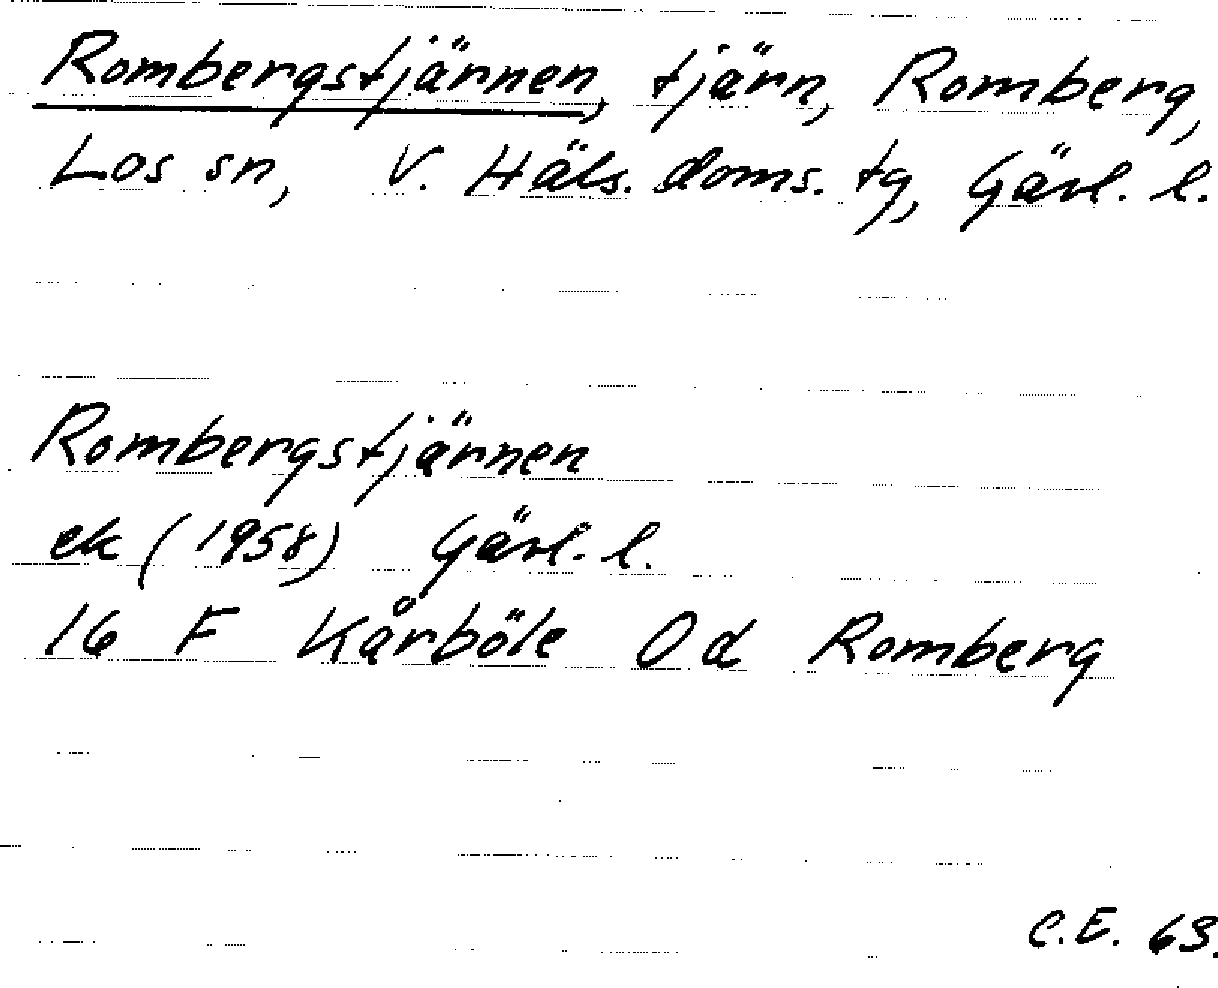 Rombergstjärnen, tjärn, Romberg,
Los sn, V. Häls. doms. tg, Gävl. l.
Rombergstjärnen
ek (1958) Gävl. l.
16 F Kårböle 0 d Romberg
C.E. 63.